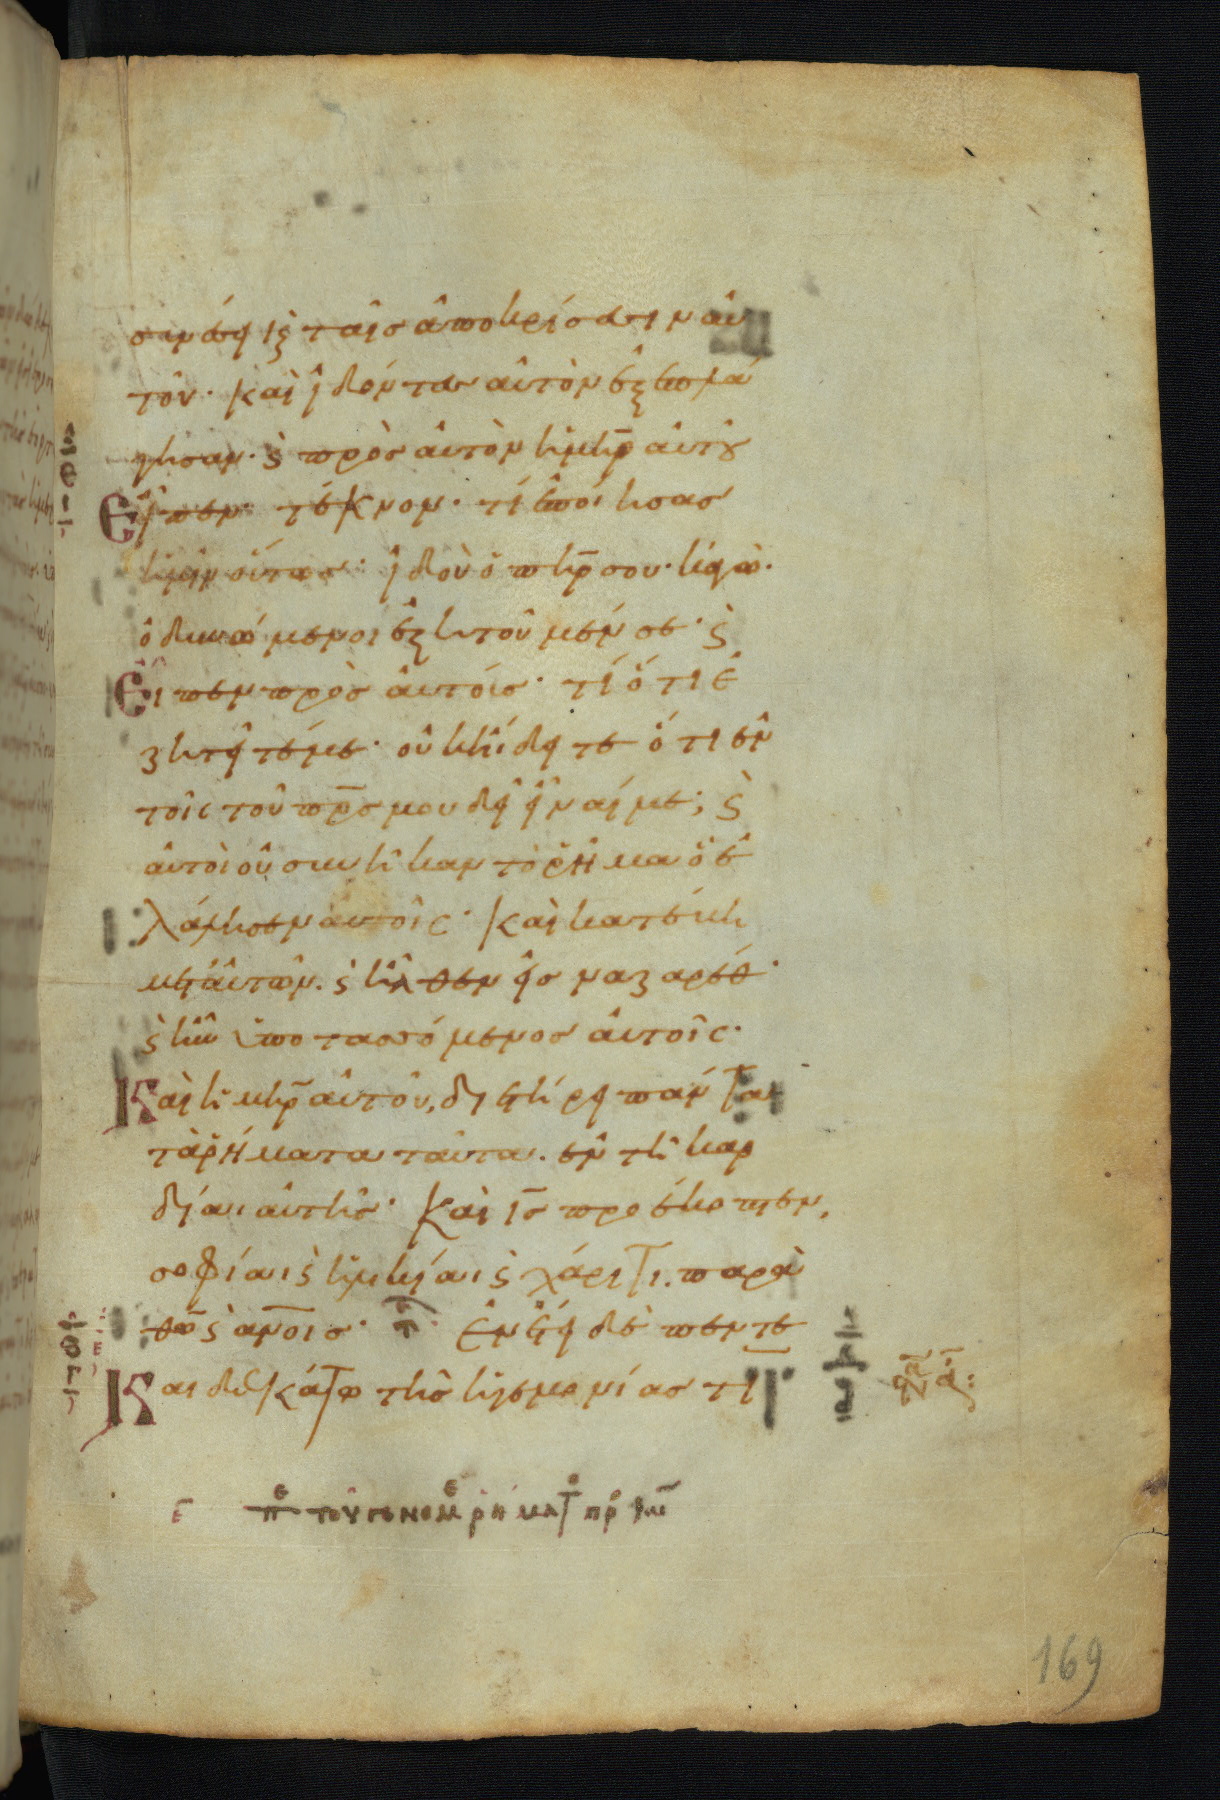 συνέσει ϗ ταῖσ ἀποκρίσεσιν αὐ
τοῦ· καὶ ἰδόντεσ αὐτὸν ἐξεπλά
γησαν· ϗ πρὸσ αὐτὸν ἡ μηρ αὐτοῦ
εἶπεν· τέκνον· τί ἐποίησασ
ἡμῖν οὕτωσ· ἰδοὺ ὁ πηρ σου· κἀγὼ·
ὀδυνώμενοι ἐζητοῦμέν σε· ϗ
εἶπεν πρὸσ αὐτούσ· τί ὅτι ἐ
ζητεῖτέ με· οὐκ ἤδειτε ὅτι ἐν
τοῖς τοῦ πρσ μου δεῖ εἶναί με; ϗ
αὐτοὶ οὐ συνῆκαν τὸ ῥῆμα ὃ ἐ
λάλησεν αὐτοῖς· καὶ κατέβη
μετ' αὐτῶν· ϗ ἦλθεν εἰσ ναζαρέθ·
ϗ ἦν ὑποτασσόμενοσ αὐτοῖς·
Καὶ ἡ μηρ αὐτοῦ, διετήρει πάντα
τὰ ῥήματα ταῦτα· ἐν τῆ καρ
δίαι αὐτῆσ· καὶ ισ προέκοπτεν,
σοφίαι ϗ ἡλικίαι ϗ χάριτι· παρὰ
θω ϗ ανοισ· Ἐν ἔτει δὲ πεντε
Και δεκάτω τῆσ ἡγεμονίασ τι
ε πε τοῦ γενομε ῥήματο πρ ιω
169